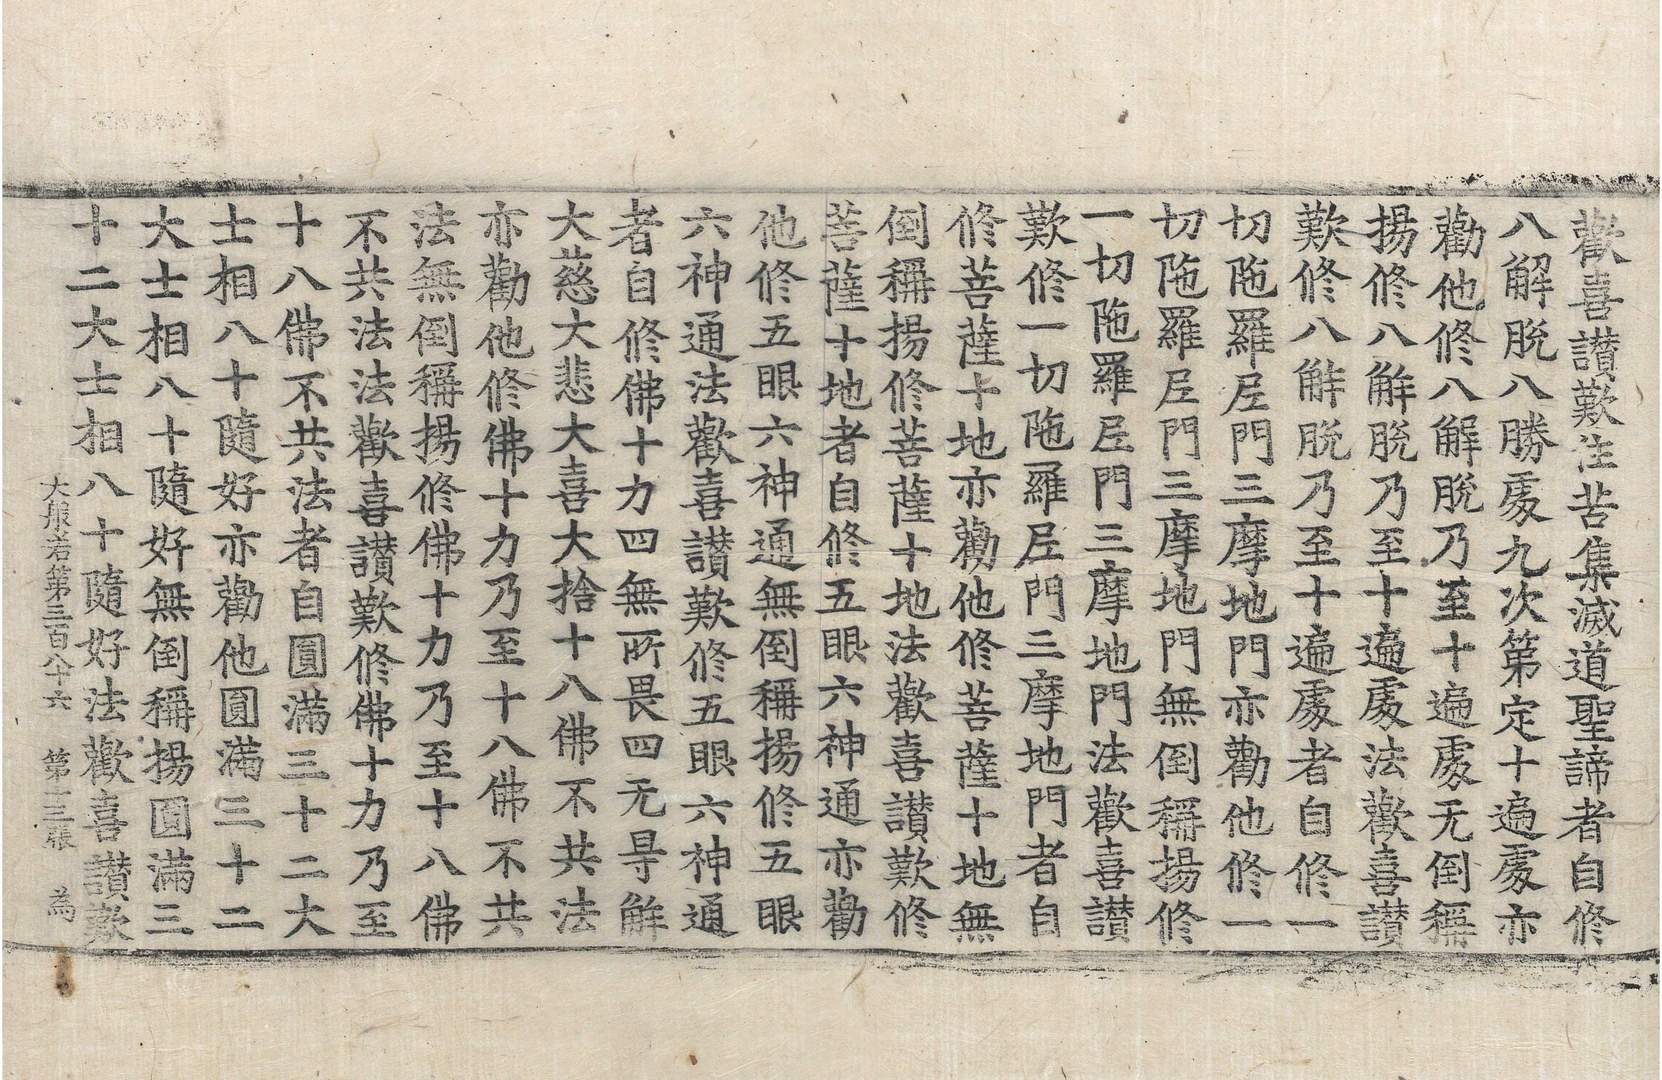 歡喜讃歎住苦集滅道聖諦者自修
八解脫八勝處九次第定十遍處亦
勸他修八解脫乃至十遍處无倒稱
揚修八解脫乃至十遍處法歡喜讃
歎修八解脫乃至十遍處者自修一
切陁羅尼門三摩地門亦勸他修一
切陁羅尼門三摩地門無倒稱揚修
一切陁羅尼門三摩地門法歡喜讃
歎修一切陁羅尼門三摩地門者自
修菩薩十地亦勸他修菩薩十地無
倒稱揚修菩薩十地法歡喜讃歎修
菩薩十地者自修五眼六神通亦勸
他修五眼六神通無倒稱揚修五眼
六神通法歡喜讃歎修五眼六神通
者自修佛十力四無所畏四无㝵解
大慈大悲大喜大捨十八佛不共法
亦勸他修佛十力乃至十八佛不共
法無倒稱揚修佛十力乃至十八佛
不共法法歡喜讃歎修佛十力乃至
十八佛不共法者自圓滿三十二大
士相八十隨好亦勸他圓滿三十二
大士相八十隨好無倒稱揚圓滿三
十二大士相八十隨好法歡喜讃歎
大般若第三百八十六 第十三張 為